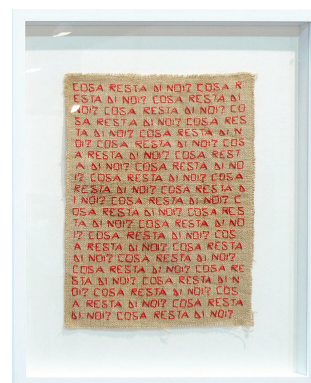 COSA RESTA DI NOI? COSA R
ESTA DI NOI? COSA RESTA DI
NOI? COSA RESTA DI NOI? CO
SA RESTA DI NOI? COSA RES
TA DI NOI? COSA RESTA DI N
OI? COSA RESTA DI NOI? COS
A RESTA DI NOI? COSA REST
A DI NOI? COSA RESTA DI NO
I? COSA RESTA DI NOI? COSA
RESTA DI NOI? COSA RESTA D
I NOI? COSA RESTA DI NOI? C
OSA RESTA DI NOI? COSA RES
TA DI NOI? COSA RESTA DI NO
I? COSA RESTA DI NOI? COS
A RESTA DI NOI? COSA RESTA
DI NOI? COSA RESTA DI NOI?
COSA RESTA DI NOI? COSA RE
STA DI NOI? COSA RESTA DI N
OI? COSA RESTA DI NOI? COS
A RESTA DI NOI? COSA RESTA
DI NOI? COSA RESTA DI NOI?